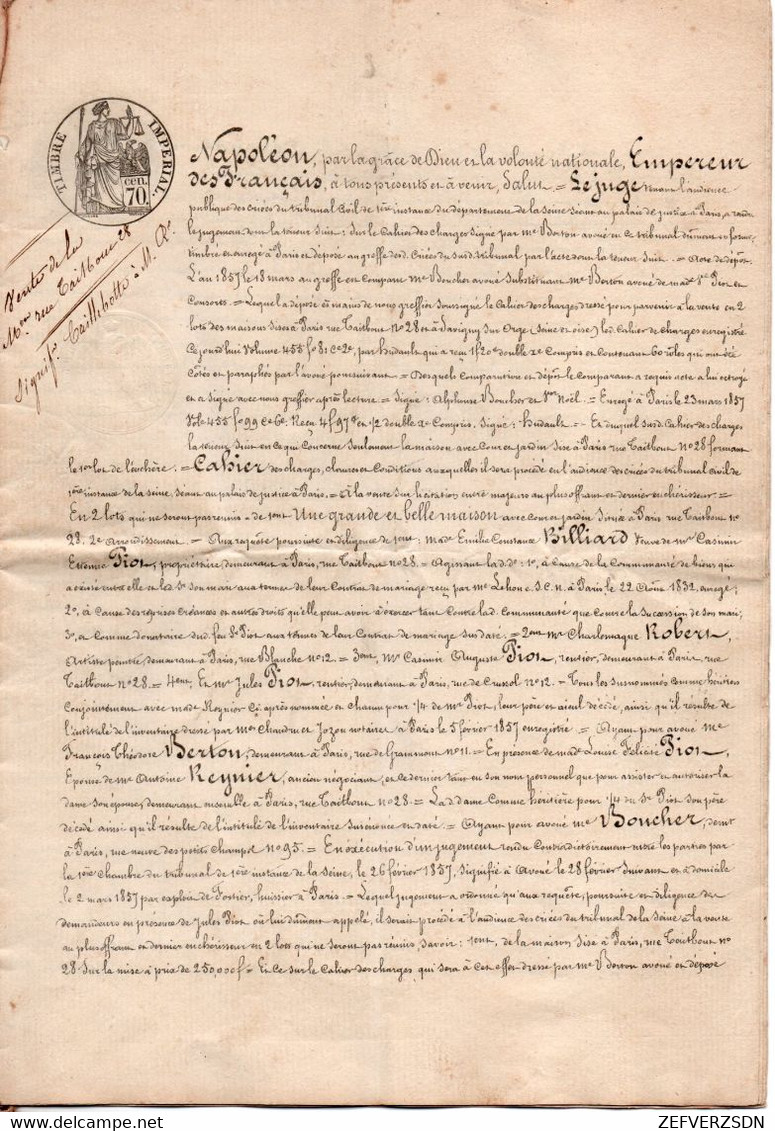 TIMBRE IMPERIAL.
cen. 70.
Vente de la
Mon rue Taitbout 28
Signif. Caillibotte à M. Re
Napoléon, par la grâce de Dieu et la volonté nationale, Empereur
des Français, à tous présents et à venir, Salut = Le juge tenant l'audience
publique des criées du tribunal Civil de 1ère instance du département de la Seine séant au palais de justice à Paris a rendu
le jugement dont la teneur suit : Sur le Cahier des charges signé par Me Berton avoué en ce tribunal dûment en forme
timbré et enregé à Paris et déposé au greffe des Criées du susd. tribunal par l'acte dont la teneur suit. = Acte de dépot.
L'an 1857 le 18 mars au greffe est Comparu Me Boucher avoué substituant Me Berton avoué de made Ve Piot et
Consorts. = Lequel a déposé ès mains de nous greffier soussigné le Cahier des charges, dressé pour parvenir à la vente en 2
lots des maisons sises à Paris rue Taitbout no 28 et à Savigny Sur Orge (Seine et oise) led. Cahier de charges enregistré
Cejourd'hui Volume 455 fo 81 Ce 2e, par hudault qui a reçu 1f 20c double 2e Compris et Contenant 60 rôles qui ont été
Cotés et paraphés par l'avoué poursuivant = Desquels Comparution et dépôt le Comparant a requis acte à lui octroyé
et a signé avec nous greffier après lecture = Signé : Alphonse Boucher et Noël. = Enregé à Paris le 23 mars 1857
Vole 455 fo 99 Ce 6e. Reçu 4f 97c et 1/2 double 2e Compris. Signé : hudault = Et duquel susd. Cahier des charges
la teneur suit en ce qui Concerne seulement la maison avec Cour et jardin Sise à Paris rue Taitbout No 28 formant
le 1er lot de l'enchère. = Cahier des charges, clauses et Conditions auxquelles il sera procédé en l'audience des criées du tribunal civil de
1ère instance de la Seine, séant au palais de justice à Paris. = À la vente sur licitation entre majeurs au plus offrant et dernier enchérisseur. =
En 2 lots qui ne seront pas réunis = de 1ent Une grande et belle maison avec Cour et jardin Située à Paris rue Taitbout no
28. 2e Arrondissement. = Aux requête poursuite et diligence de 1ent : made Emilie Constance Billiard Veuve de Mr Casimir
Etienne Piot, propriétaire, demeurant à Paris, rue Taitbout no 28. = Agissant lad. de : 1o, à Cause de la Communauté de biens qui
a existé entre elle et led. Sr son mari aux termes de leur Contrat de mariage reçu par Me Lehon e.S.C. n. à Paris le 22 Août 1832, enregé ;
2o, à Cause des reprises Créances et autres droits qu'elle peut avoir à exercer tant Contre lad. Communauté que Contre la Succession de son mari ;
3o, et Comme donataire dud. feu Sr Piot aux termes de leur Contrat de mariage susdaté. = 2ent Mr Charlemagne Robert,
Artiste peintre, demeurant à Paris, rue Blanche no 12. = 3ent, Mr Casimir Auguste Piot, rentier, demeurant à Paris, rue
Taitbout no 28. = 4ent, Et Mr Jules Piot, rentier, demeurant à Paris, rue de Crussol No 12. = Tous les susnommés Comme héritiers
Conjointement avec made Reynier Ci-après nommée et chacun pour 1/4 de Mr Piot, leur père et aïeul décédé, ainsi qu'il résulte de
l'intitulé de l'inventaire dressé par Me Chandru et Jozon notaires à Paris le 5 février 1857 enregistré = Ayant pour avoué Me
François Théodore Berton, demeurant à Paris, rue de Grammont no 11. = En présence de made Louise Félicité Piot,
Epouse de Mr Antoine Reynier, ancien négociant, et ce dernier tant en son nom personnel que pour assister et autoriser la
dame Son épouse, demeurant ensemble à Paris, rue Taitbout no 28. = Lad. dame Comme héritière pour 1/4 du Sr Piot Son père
décédé ainsi qu'il résulte de l'intitulé de l'inventaire susénoncé et daté. = Ayant pour avoué Me Boucher, demt
à Paris, rue neuve des petits Champs no 95. = En exécution d'un jugement rendu Contradictoirement entre les parties par
la 1ère Chambre du tribunal de 1ère instance de la Seine, le 26 février 1857, signifié à Avoué le 28 février Suivant et à domicile
le 2 mars 1857 par exploit de Fortier, huissier à Paris. = Lequel jugement a ordonné qu'aux requête, poursuite et diligence des
demandeurs en présence de Jules Piot où lui dûment appelé, il serait procédé à l'audience des criées du tribunal de la Seine à la vente
au plus offrant et dernier enchérisseur en 2 lots qui ne seront pas réunis, Savoir : 1ent, de la maison Sise à Paris, rue Taitbout no
28 Sur la mise à prix de 250,000f = Et ce sur le Cahier des charges qui sera à cet effet dressé par Me Berton avoué et déposé
delcampe.net
ZEFVERZSDN